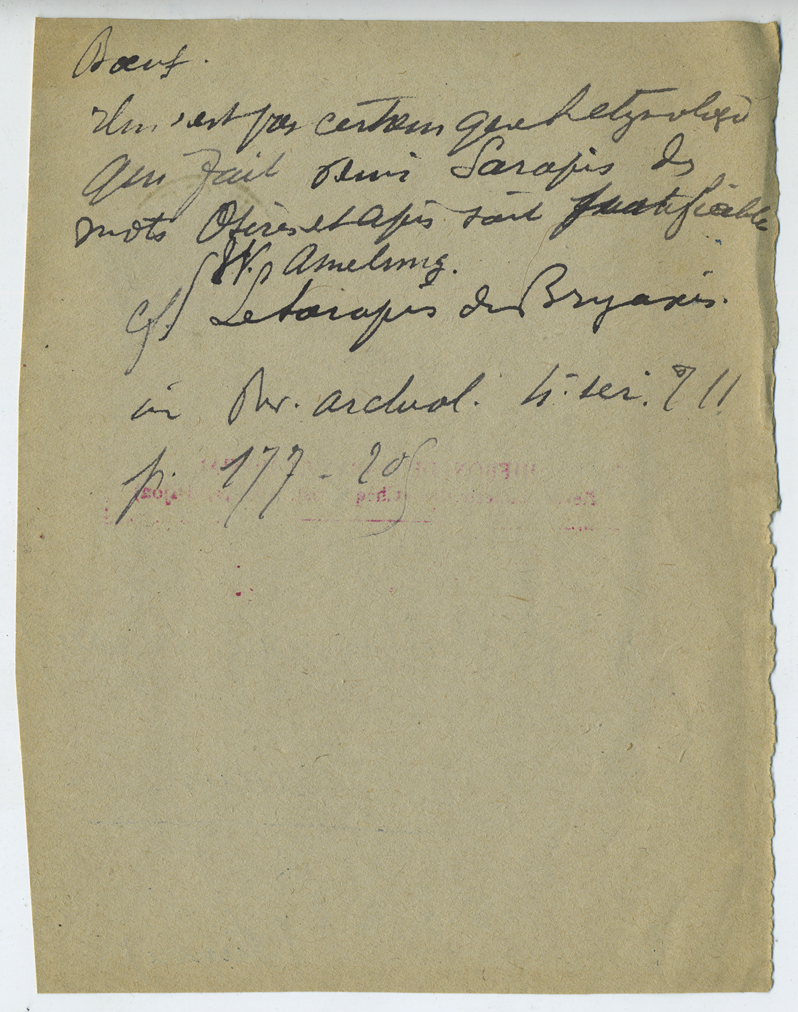 Bœuf.
Il n'est pas certain que l'etymologie
qui fait venir Sarapis des
mots Osiris et Apis soit justifiable
W. Amelung.
cf. Le Sarapis de Bryaxis.
in Rev. archéol. 4. ser. T II
p. 177-20